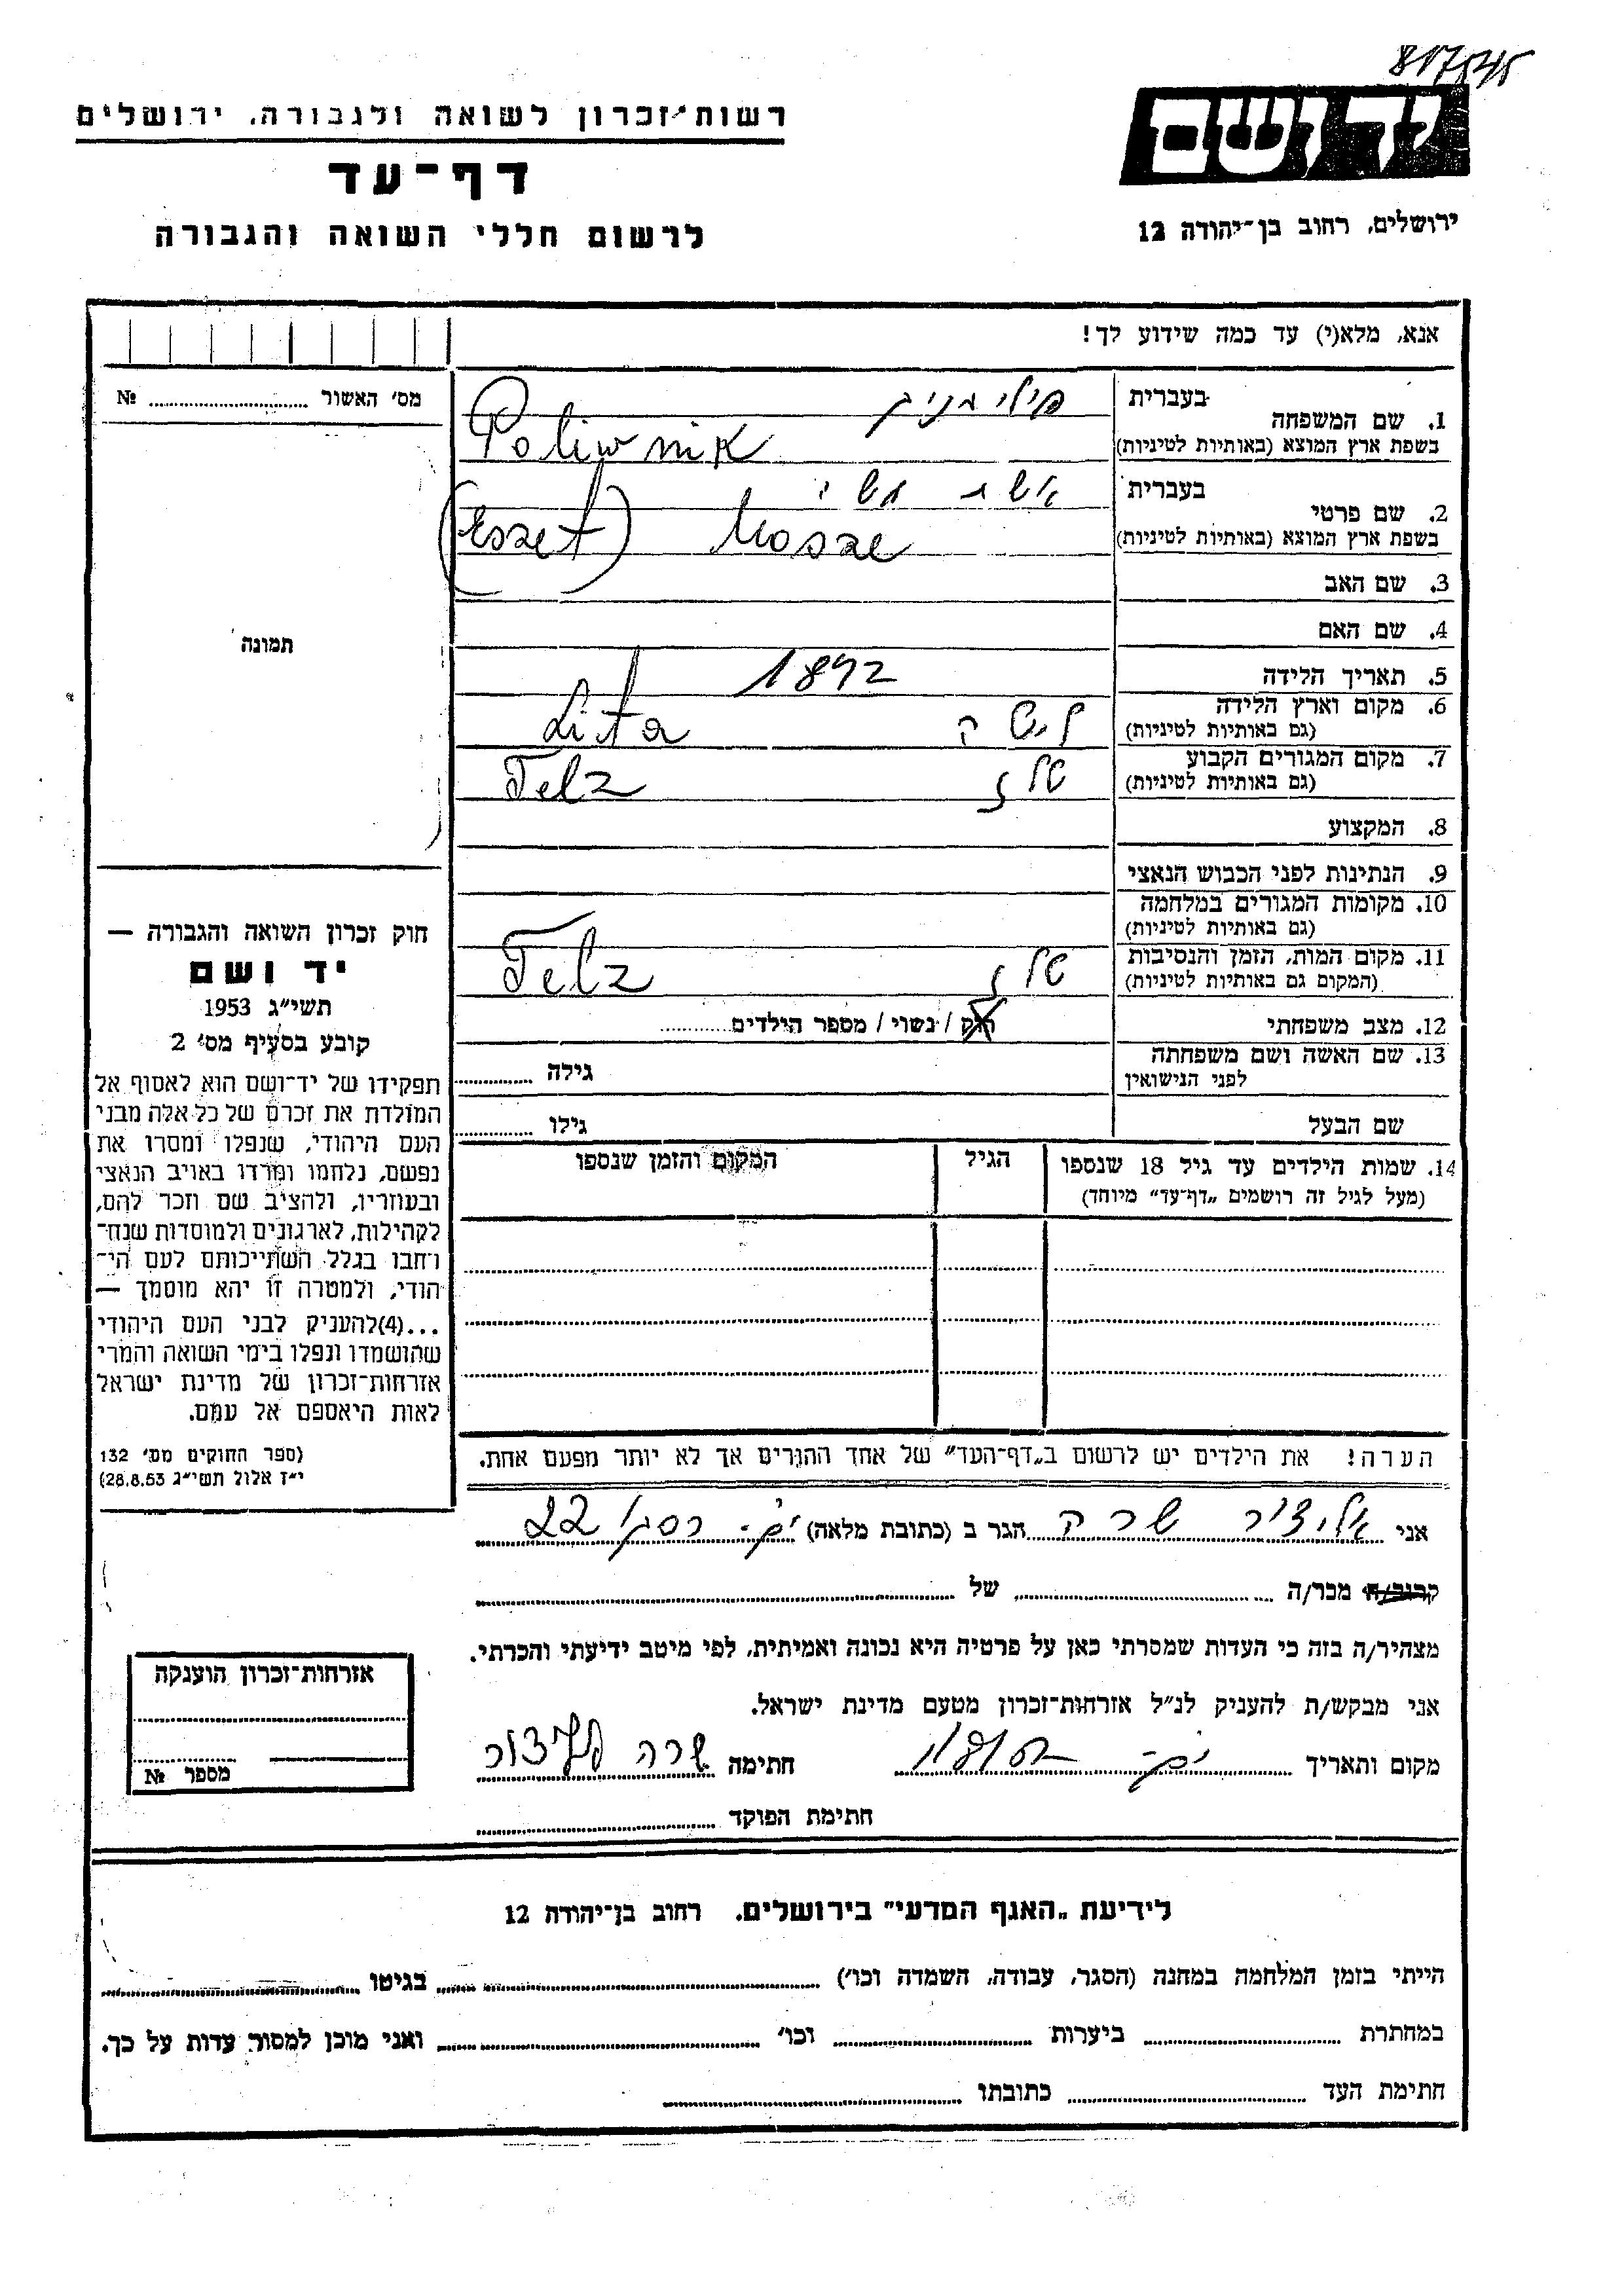 817545
יד ושם
ירושלים, רחוב בן־יהודה 12
רשות־זכרון לשואה ולגבורה, ירושלים
דף־עד
לרשום חללי השואה והגבורה
אנא, מלא(י) עד כמה שידוע לך!
מס׳ האשור № ..........
תמונה
1. שם המשפחה
בעברית
בשפת ארץ המוצא (באותיות לטיניות)
Poliwnik
2. שם פרטי
בעברית
בשפת ארץ המוצא (באותיות לטיניות)
Mosze (Eszet)
3. שם האב
4. שם האם
5. תאריך הלידה 1892
6. מקום וארץ הלידה
(גם באותיות לטיניות)
ליטה Lita
7. מקום המגורים הקבוע
(גם באותיות לטיניות)
טלז Telz
8. המקצוע
9. הנתינות לפני הכבוש הנאצי
10. מקומות המגורים במלחמה
(גם באותיות לטיניות)
11. מקום המות, הזמן והנסיבות
(המקום גם באותיות לטיניות)
טלז Telz
12. מצב משפחתי רוק / נשוי / מספר הילדים..........
13. שם האשה ושם משפחתה
לפני הנישואין
גילה ..........
שם הבעל גילו ..........
14. שמות הילדים עד גיל 18 שנספו
(מעל לגיל זה רושמים „דף־עד” מיוחד)
הגיל
המקום והזמן שנספו
הערה! את הילדים יש לרשום ב„דף־העד” של אחד ההורים אך לא יותר מפעם אחת.
חוק זכרון השואה והגבורה —
יד ושם
תשי״ג 1953
קובע בסעיף מס׳ 2
תפקידו של יד־ושם הוא לאסוף אל
המולדת את זכרם של כל אלה מבני
העם היהודי, שנפלו ומסרו את
נפשם, נלחמו ומרדו באויב הנאצי
ובעוזריו, ולהציב שם וזכר להם,
לקהילות, לארגונים ולמוסדות שנח־
רחבו בגלל השתייכותם לעם הי־
הודי, ולמטרה זו יהא מוסמך —
...(4)להעניק לבני העם היהודי
שהושמדו ונפלו בימי השואה והמרי
אזרחות־זכרון של מדינת ישראל
לאות היאספם אל עמם.
(ספר החוקים מס׳ 132
י״ז אלול תשי״ג 28.8.53)
אני שרה הגר ב (כתובת מלאה) 22
קרוב/ה מכר/ה .......... של ..........
מצהיר/ה בזה כי העדות שמסרתי כאן על פרטיה היא נכונה ואמיתית, לפי מיטב ידיעתי והכרתי.
אני מבקש/ת להעניק לנ״ל אזרחות־זכרון מטעם מדינת ישראל.
מקום ותאריך חתימה שרה
חתימת הפוקד ..........
אזרחות־זכרון הוענקה
מספר №
לידיעת „האגף המדעי” בירושלים, רחוב בן־יהודה 12
הייתי בזמן המלחמה במחנה (הסגר, עבודה, השמדה וכו׳) .......... בגיטו ..........
במחתרת .......... ביערות .......... וכו׳ .......... ואני מוכן למסור עדות על כך.
חתימת העד .......... כתובתו ..........